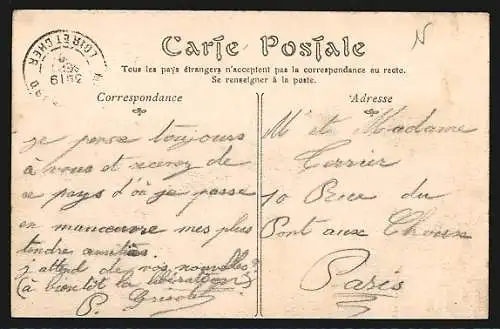 LOIR ET CHER
N
Carte Postale
Tous les pays étrangers n'acceptent pas la correspondance au recto.
Se renseigner à la poste.
Correspondance
Adresse
Je pense toujours
à vous et recevez de
ce pays d'où je passe
en manœuvre mes plus
tendre amitiés
j'attend de vos nouvelles
(à bientôt la libération)
P.
M et Madame
Cerrier
10 Rue du
Pont aux Choux
Paris